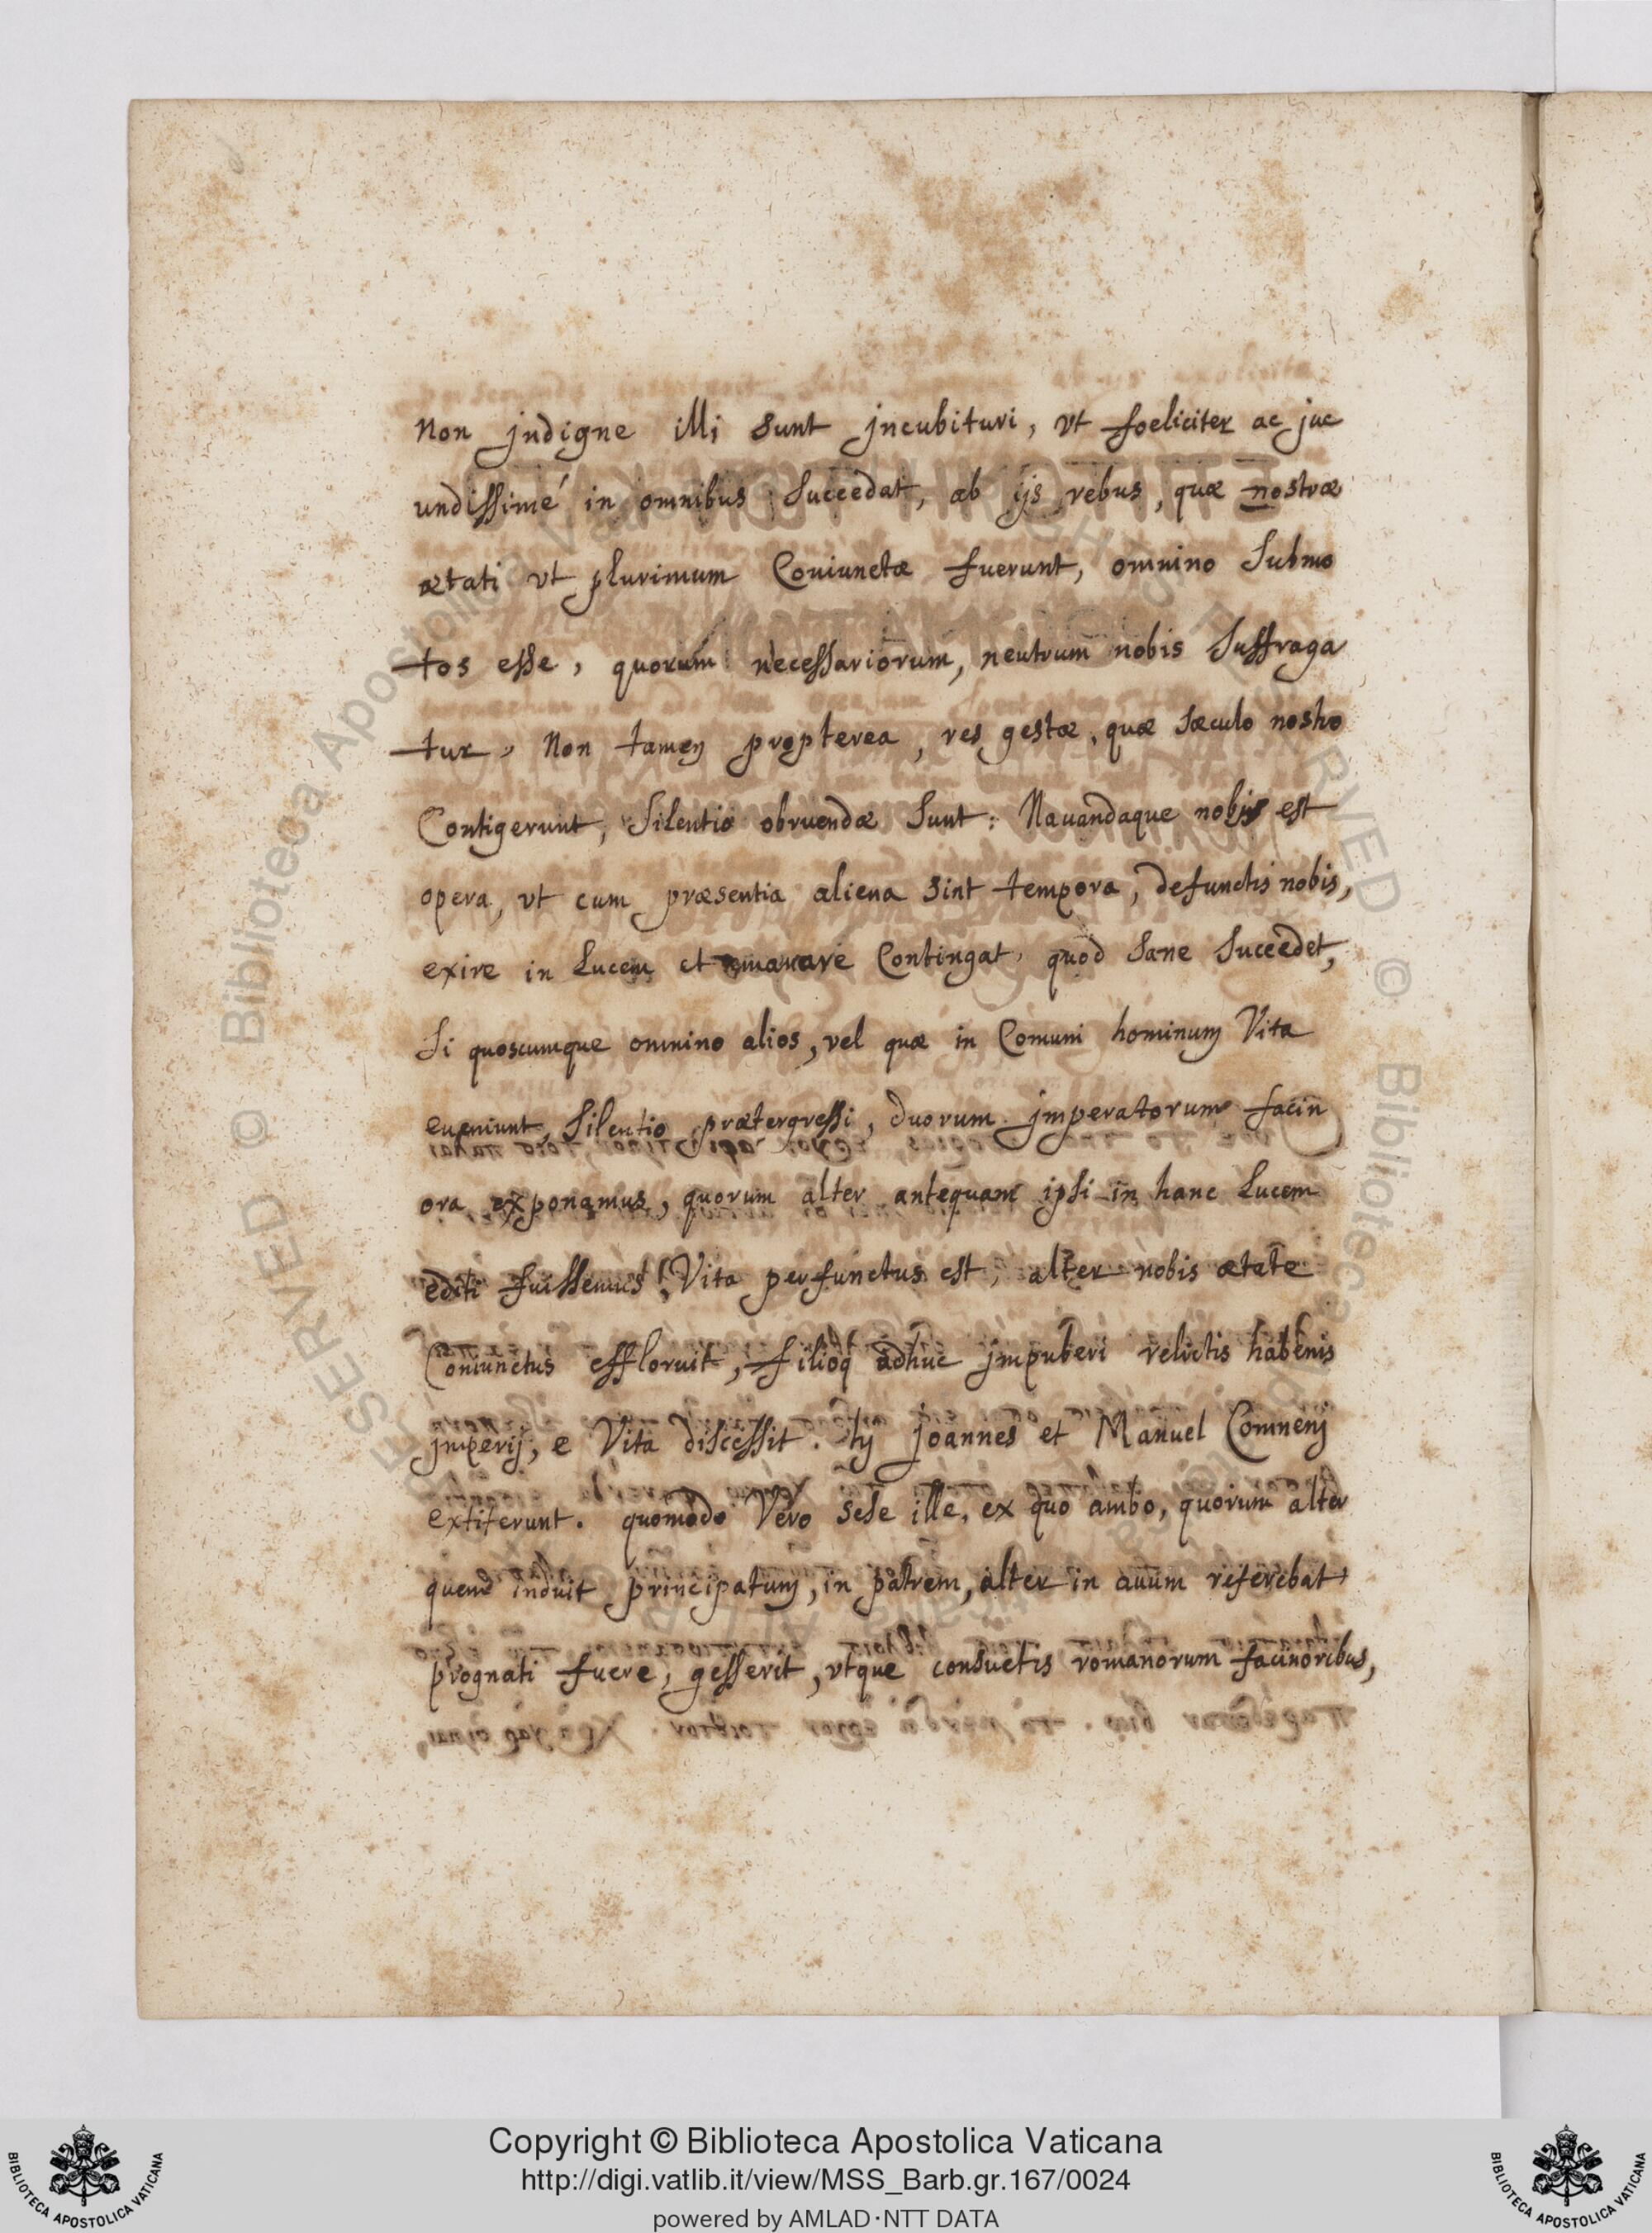 Non jndigne illi sunt jncubituri, vt foeliciter ac juc
undissimé in omnibus succedat, ab ijs rebus, quæ nostræ
ætati vt plurimum Coniunctæ fuerunt, omnino submo
tos esse, quorum necessariorum, neutrum nobis suffraga
tur, Non tamen propterea, res gestæ, quæ sæculo nostro
Contigerunt, silentio obruendæ sunt: Nauandaque nobis est
opera, vt cum præsentia aliena sint tempora, defunctis nobis,
exire in Lucem et manare Contingat, quod sane succedet,
si quoscumque omnino alios, vel quæ in Comuni hominum Vita
eueniunt, silentio prætergressi, duorum jmperatorum facin
ora exponamus, quorum alter antequam ipsi in hanc Lucem
editi fuissemus, Vita perfunctus est, alter nobis ætate
Coniunctus effloruit, filioq adhuc jmpuberi relictis habenis
jmperij, e Vita discessit. Ij Joannes et Manuel Comnenj
extiterunt. quomodo Vero sese ille, ex quo ambo, quorum alter
quem induit principatum, in patrem, alter in auum referebat
prognati fuere, gesserit, vtque consuetis romanorum facinoribus,
Copyright © Biblioteca Apostolica Vaticana
http://digi.vatlib.it/view/MSS_Barb.gr.167/0024
powered by AMLAD·NTT DATA
BIBLIOTECA APOSTOLICA VATICANA
BIBLIOTECA APOSTOLICA VATICANA